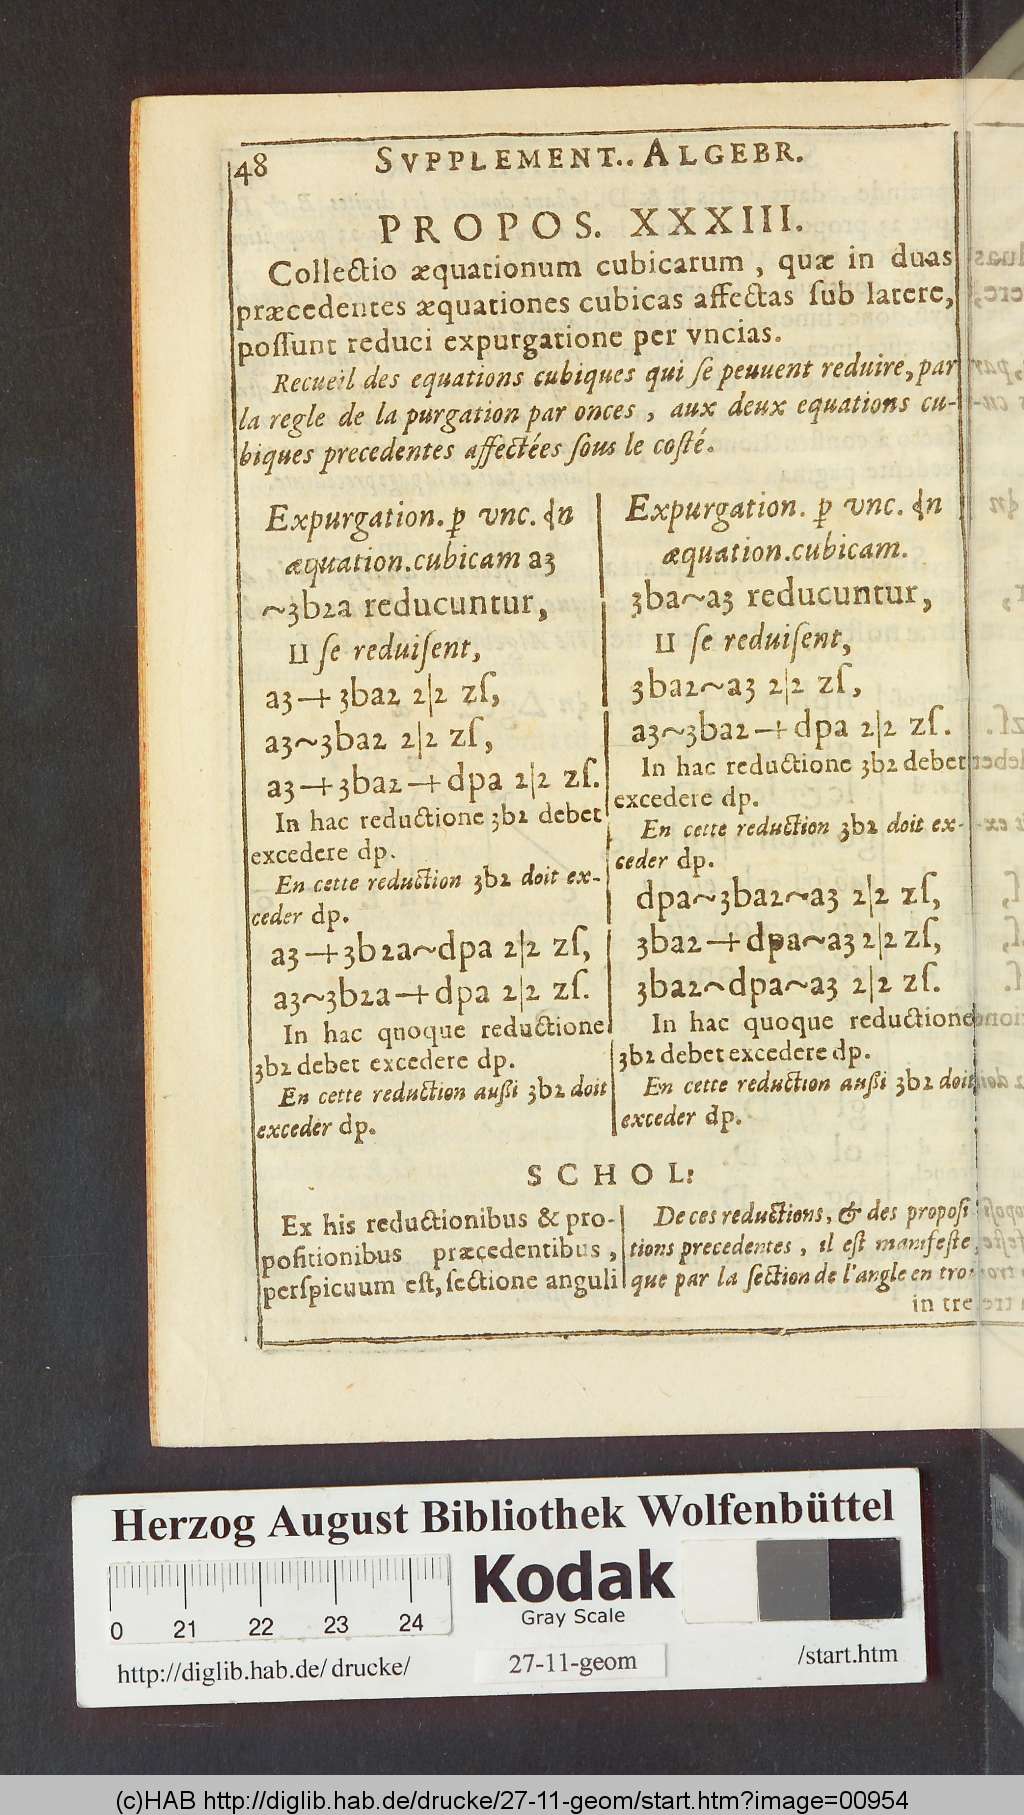 48 SVPPLEMENT.. ALGEBR.
PROPOS. XXXIII.
Collectio æquationum cubicarum , quæ in duas
præcedentes æquationes cubicas affectas ſub latere,
poſſunt reduci expurgatione per vncias.
Recueil des equations cubiques qui ſe peuuent reduire, par
la regle de la purgation par onces , aux deux equations cu-
biques precedentes affectées ſous le coſté.
Expurgation. ꝑ vnc. in
æquation.cubicam a3
~3b2a reducuntur,
II ſe reduiſent,
a3+3ba2 2|2 zſ,
a3~3ba2 2|2 zſ,
a3+3ba2+dpa 2|2 zſ.
In hac reductione 3b2 debet
excedere dp.
En cette reduction 3b2 doit ex-
ceder dp.
a3+3b2a~dpa 2|2 zſ,
a3~3b2a+dpa 2|2 zſ.
In hac quoque reductione
3b2 debet excedere dp.
En cette reduction außi 3b2 doit
exceder dp.
Expurgation. ꝑ vnc. in
æquation.cubicam.
3ba~a3 reducuntur,
II ſe reduiſent,
3ba2~a3 2|2 zſ,
a3~3ba2+dpa 2|2 zſ.
In hac reductione 3b2 debet
excedere dp.
En cette reduction 3b2 doit ex-
ceder dp.
dpa~3ba2~a3 2|2 zſ,
3ba2+dpa~a3 2|2 zſ,
3ba2~dpa~a3 2|2 zſ.
In hac quoque reductione
3b2 debet excedere dp.
En cette reduction außi 3b2 doit
exceder dp.
SCHOL:
Ex his reductionibus & pro-
poſitionibus præcedentibus ,
perſpicuum eſt, ſectione anguli
De ces reductions, & des propoſi
tions precedentes , il eſt manifeſte
que par la ſection de l'angle en tro
in tre
Herzog August Bibliothek Wolfenbüttel
0 21 22 23 24
Kodak
Gray Scale
http://diglib.hab.de/ drucke/ 27-11-geom /start.htm
(c)HAB http://diglib.hab.de/drucke/27-11-geom/start.htm?image=00954